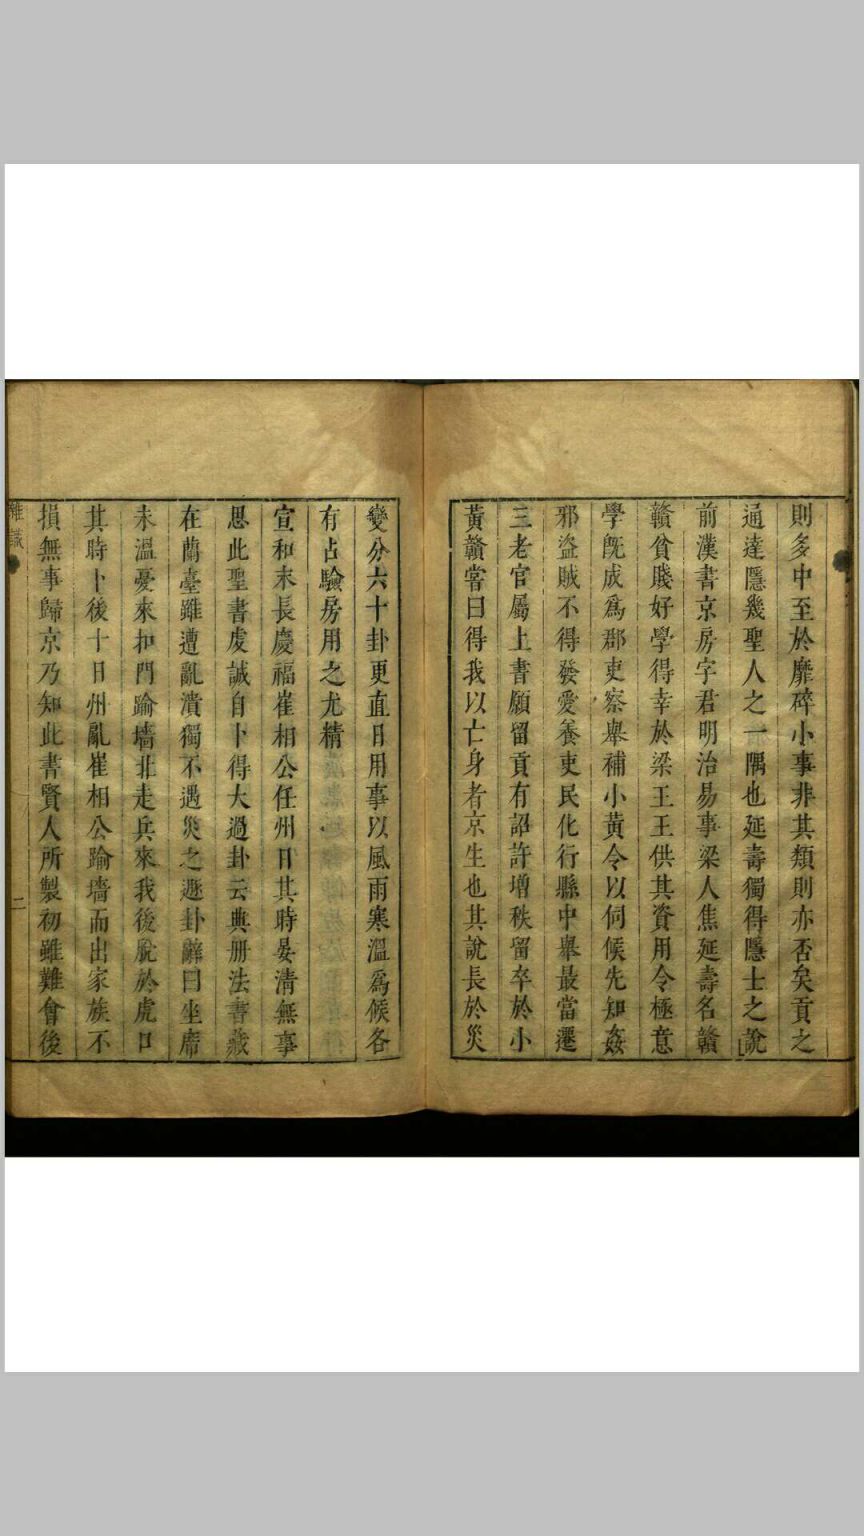 則多中至於靡碎小事非其類則亦否矣貢之
通達隱幾聖人之一隅也延壽獨得隱士之說
前漢書京房字君明治易事梁人焦延壽名贛
贛貧賤好學得幸於梁王王供其資用令極意
學既成爲郡吏察舉補小黃令以伺候先知姦
邪盜賊不得發愛養吏民化行縣中舉最當遷
三老官屬上書願留貢有詔許增秩留卒於小
黃贛嘗曰得我以亡身者京生也其說長於災
變分六十卦更直日用事以風雨寒溫爲候各
有占驗房用之尤精
宣和末長慶福崔相公任州日其時晏清無事
思此聖書虔誠自卜得大過卦云典册法書藏
在蘭臺雖遭亂潰獨不遇災之遯卦辭曰坐席
未溫憂來扣門踰墻北走兵來我後脫於虎口
其時卜後十日州亂崔相公踰墻而出家族不
損無事歸京乃知此書賢人所製初雖難會後
雜識
二